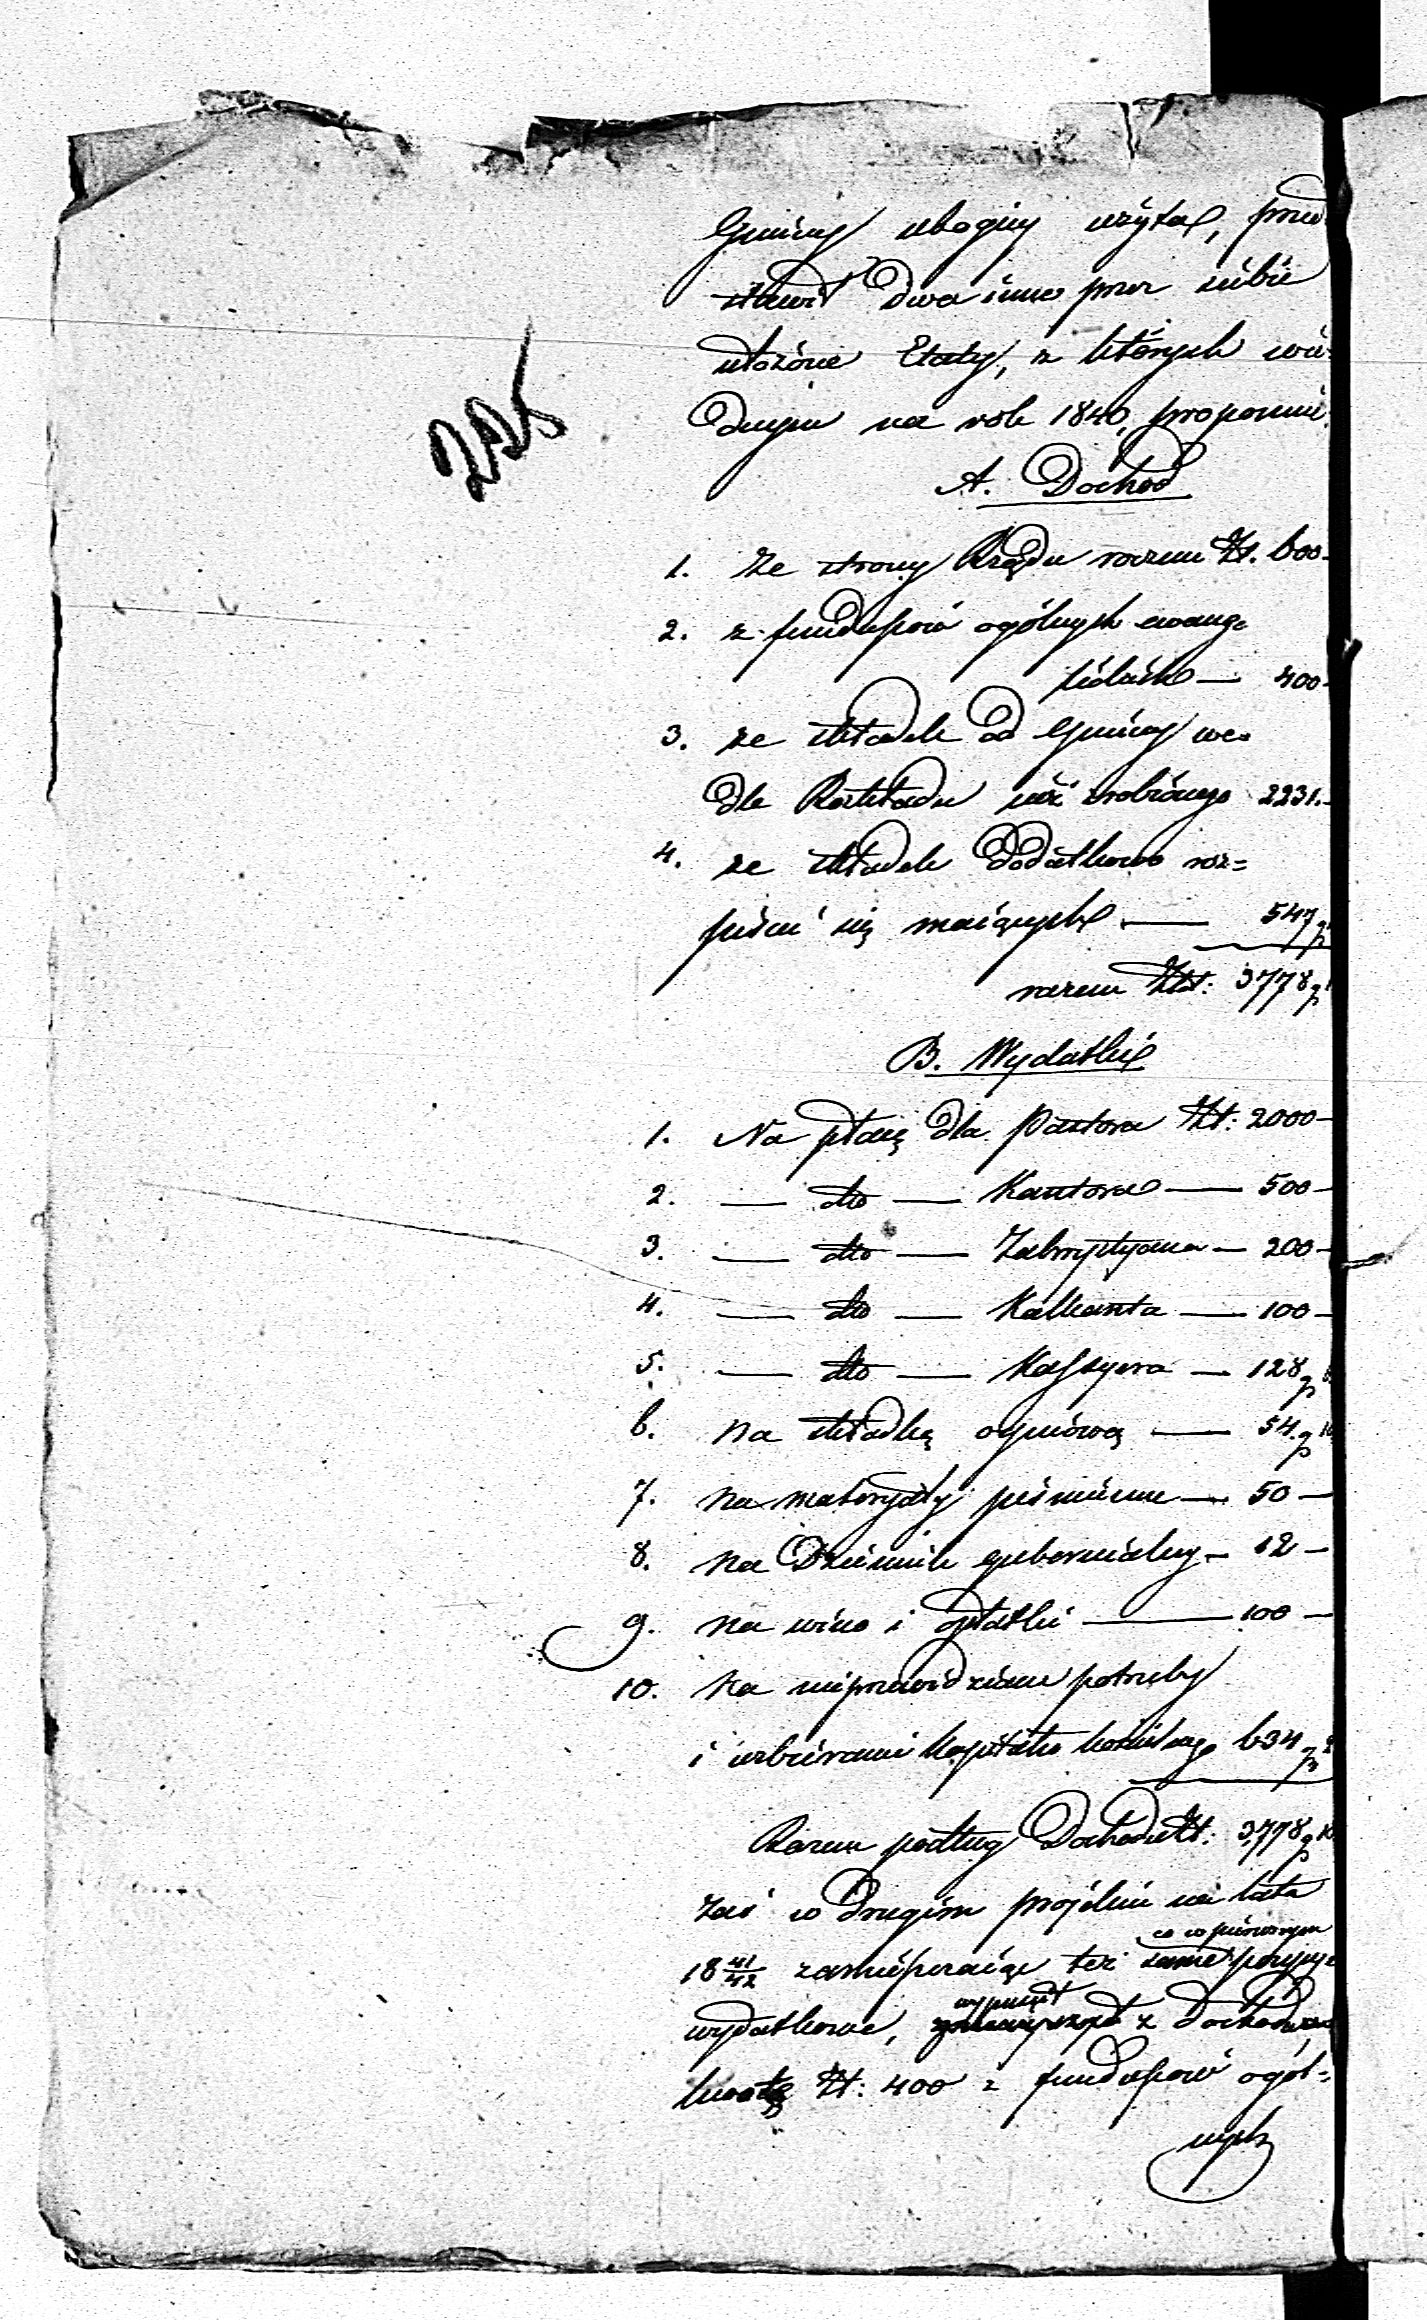 225
Gminy ubogiey użytą, przed
stawił Dwa inne przez siebie
ułożone Etaty, z których w ie
dnym na rok 1840, proponuie
A. Dochod
1. Ze strony Rządu rocznie Zł. 600-
2. z funduszów ogólnych ewange
lickich — 400-
3. ze składek od Gminy we-
dle Rozkładu już zrobionego 2231.-
4. ze składek Dodatkowo roz=
pisać się maiących — 547 g
razem Złt: 3778 g
B. Wydatki
1. Na płacę dla Pastora Zł: 2000-
2. — dto — Kantora — 500-
3. — dto — Zakrystyana — 200-
4. — dto — Kalkanta — 100-
5. — dto — Kassyera — 128 g
6. na składkę ogniową — 54. g
7. na materyały piśmienne — 50 —
8. na Dziennik gubernialny — 12 —
9. na wino i opłatki — 100 —
10. na nieprzewidziane potrzeby
i uzbieranie kapitału kościelnego 634 g
Razem podług Dochodu Zł: 3,778 g
Zaś w Drugim projekcie na lata
co w pierwszym
18 41/42 zamieszczaiąc też same pozycye
wypuścił
wydatkowe, z Dochodu
kwotę Zł: 400 z funduszów ogól=
nych